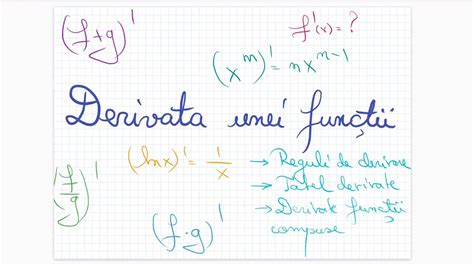 (f+g)'
f'(x)=?
(x^m)'=nx^{n-1}
Derivata unei funcții
(lnx)'=1/x
→ Reguli de derivare
→ Tabel derivate
(f/g)'
→ Derivate funcții
compuse
(f·g)'